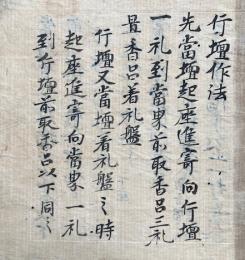 行壇作法
先當壇起座進寄向行壇
一礼到當界前取香呂三礼
畳香呂着礼盤
行壇又當壇着礼盤之時
起座進寄向當界一礼
到行壇前取香呂以下同之